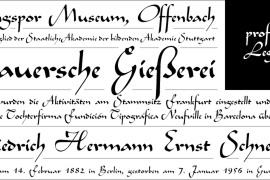 ngspor Museum, Offenbach
glied der Staatliche Akademie der bildenden Akademie Stuttgart
auersche Gießerei
wurden die Aktivitäten am Stammsitz Frankfurt eingestellt und
e Tochterfirma Fundición Tipografica Neufville in Barcelona üb
iedrich Hermann Ernst Schne
am 14. Februar 1882 in Berlin, gestorben am 7. Januar 1956 in Gu
prof
Leg